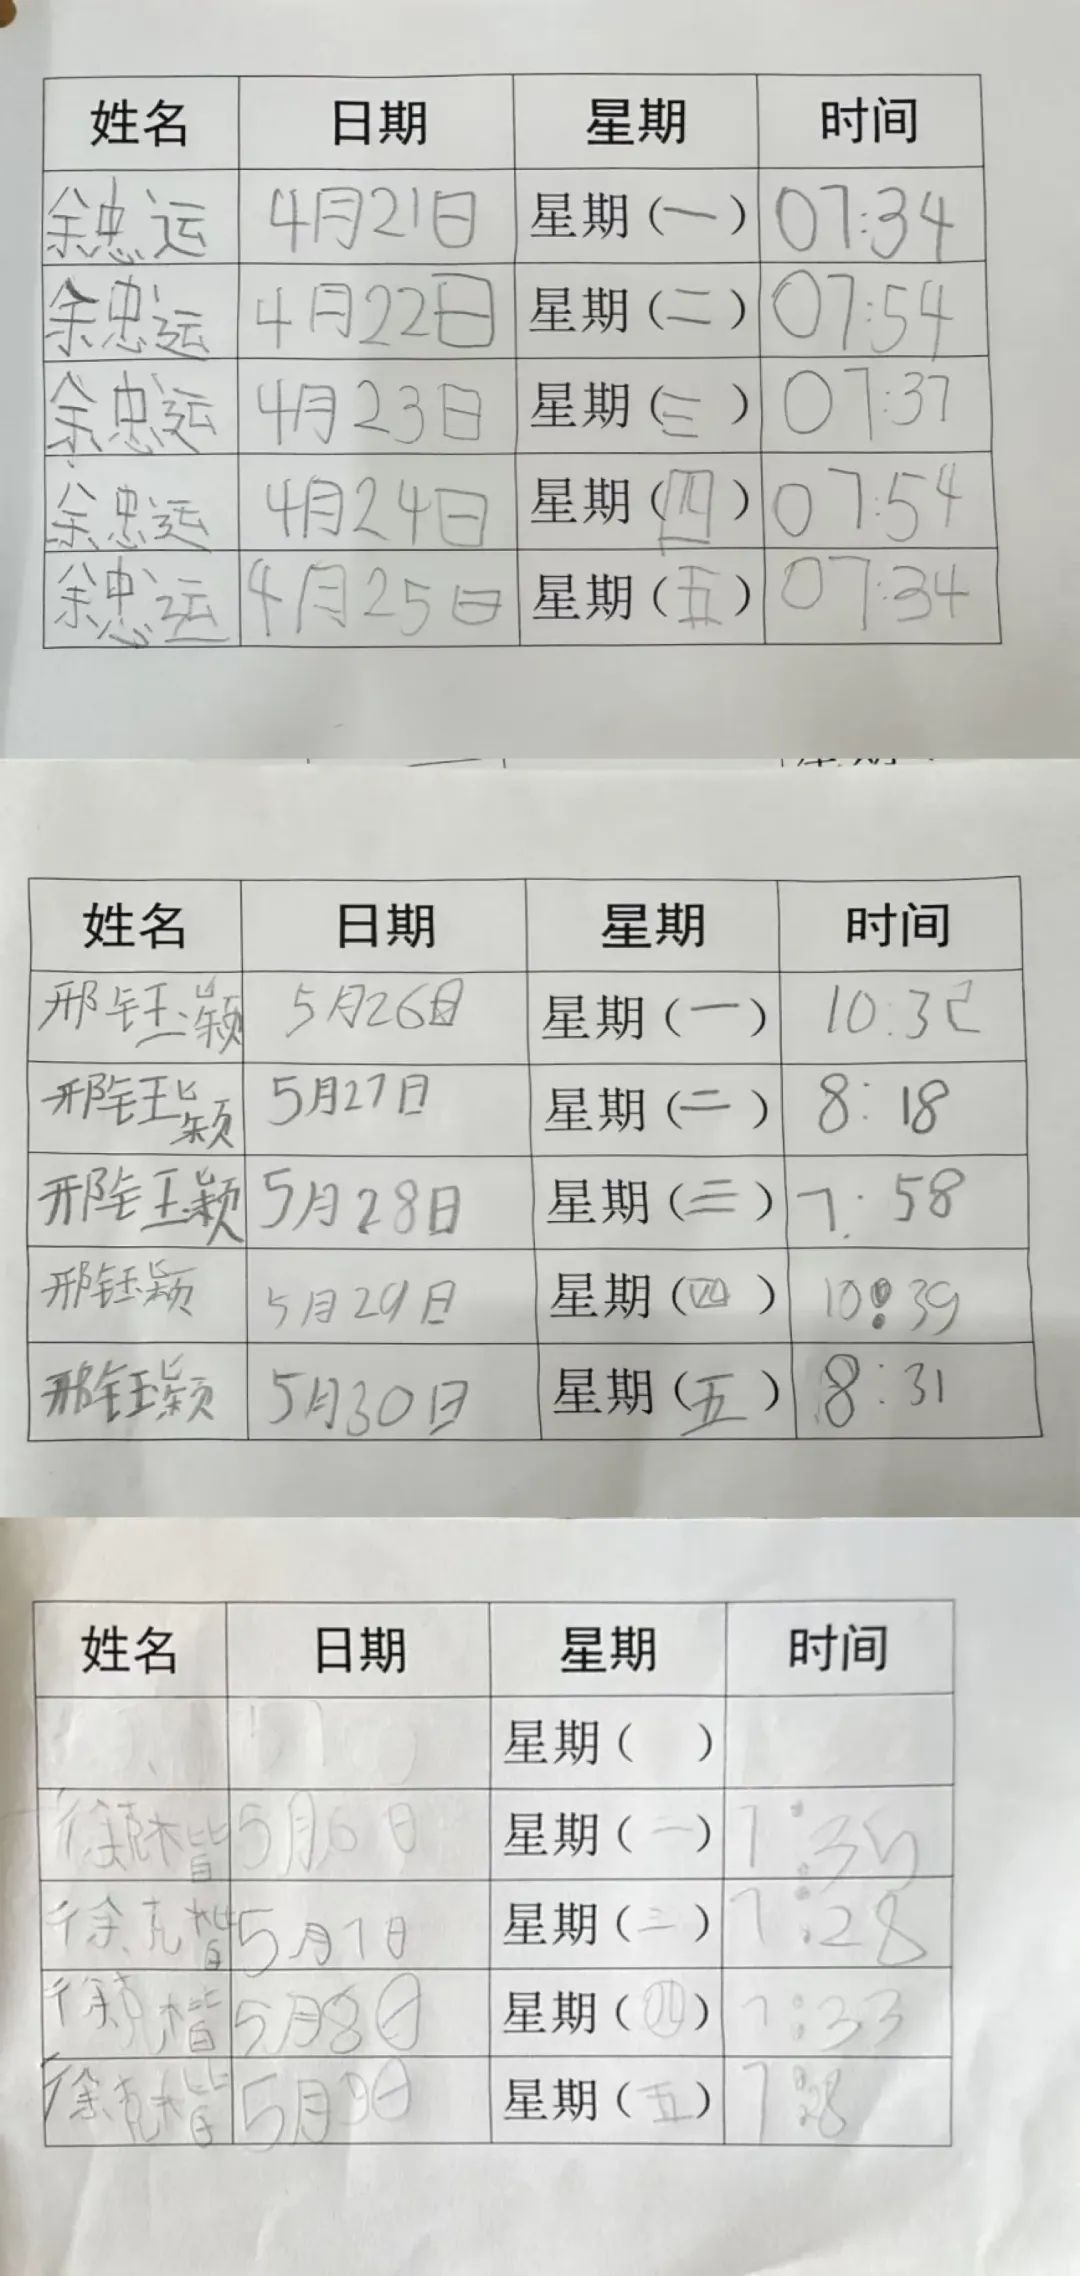 姓名 日期 星期 时间
余忠运 4月21日 星期(一) 07:34
余忠运 4月22日 星期(二) 07:54
余忠运 4月23日 星期(三) 07:37
余忠运 4月24日 星期(四) 07:54
余忠运 4月25日 星期(五) 07:34
姓名 日期 星期 时间
邢钰颖 5月26日 星期(一) 10:32
邢钰颖 5月27日 星期(二) 8:18
邢钰颖 5月28日 星期(三) 7:58
邢钰颖 5月29日 星期(四) 10:39
邢钰颖 5月30日 星期(五) 8:31
姓名 日期 星期 时间
星期( )
徐克楷 5月6日 星期(二) 7:35
徐克楷 5月7日 星期(三) 7:28
徐克楷 5月8日 星期(四) 7:33
徐克楷 5月9日 星期(五)